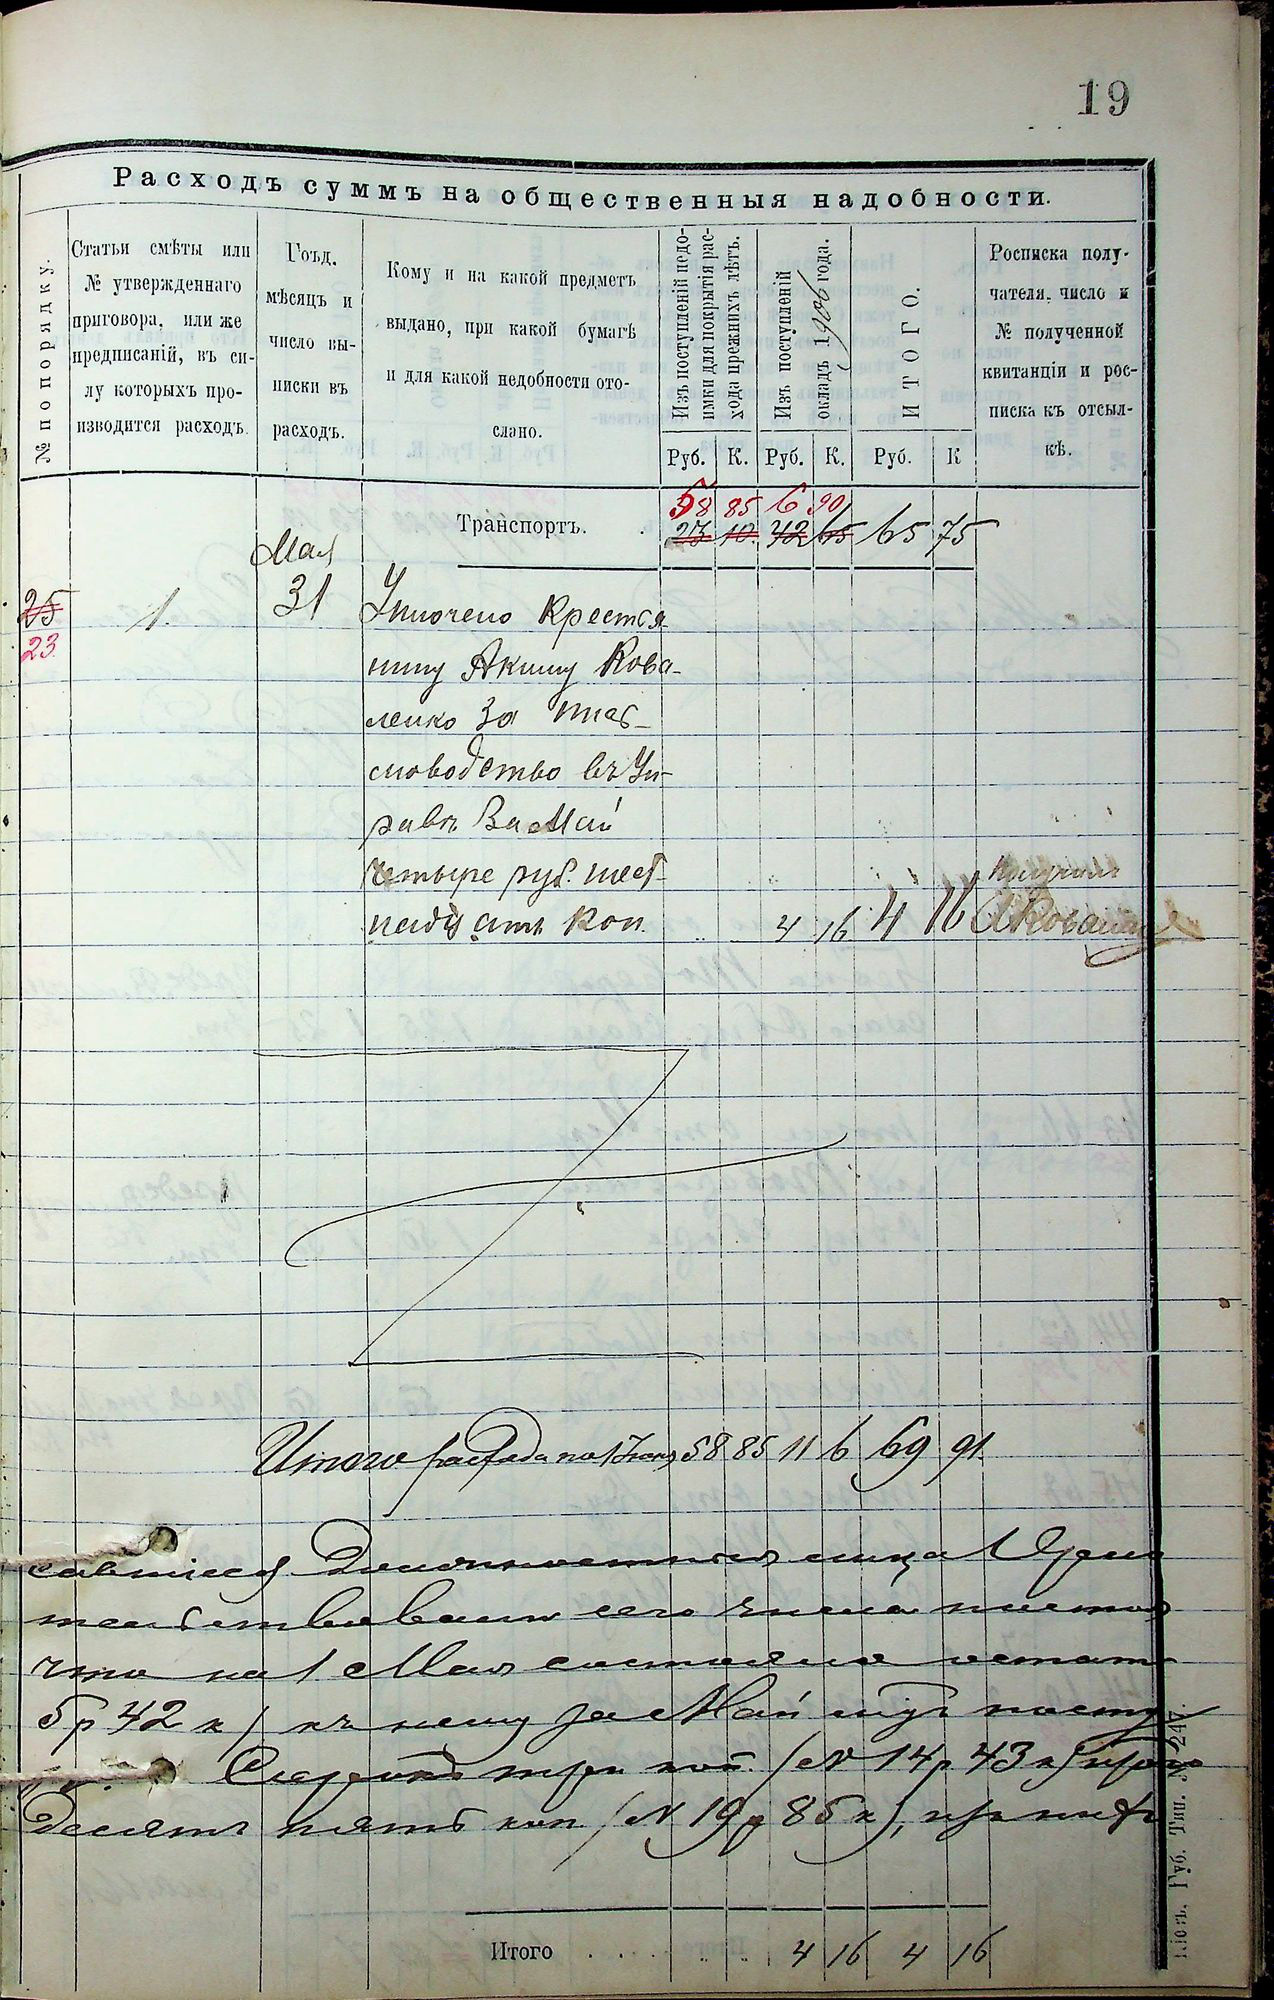 19
Расходъ суммъ на общественныя надобности.
№ по порядку.
Статьи смѣты или
№ утвержденнаго
приговора, или же
предписаній, въ си-
лу которыхъ про-
изводится расходъ.
Гоъд,
мѣсяцъ и
число вы-
писки въ
расходъ.
Кому и на какой предметъ
выдано, при какой бумагѣ
и для какой недобности ото-
слано.
Изъ поступленій недо-
имки для покрытія рас-
хода прежнихъ лѣтъ.
Изъ поступленій
окладъ 1906 года.
ИТОГО.
Росписка полу-
чателя, число и
№ полученной
квитанціи и рос-
писка къ отсыл-
кѣ.
Руб. К. Руб. К. Руб. К
58 85 6 90
Транспортъ. 23 10 42 65 65 75
Мая
25 1. 31 Уплочено Крестья-
23
нину Акиму Кова-
ленко за
словодство въ Уп-
равѣ за Май
четыре руб. шест-
надцать коп. 4 16 4 16
Получилъ
АКоваленко
Итого расхода на 1 58 85 11 6 69 91.
лица
сего числа
что на 1 Мая состояло остат
5 р 42 к) къ нему за Май
три коп. (№ 14 р 43 к)
десять пять коп (№ 19 р 85 к),
Итого 4 16 4 16
Губ. Тип. № 247.